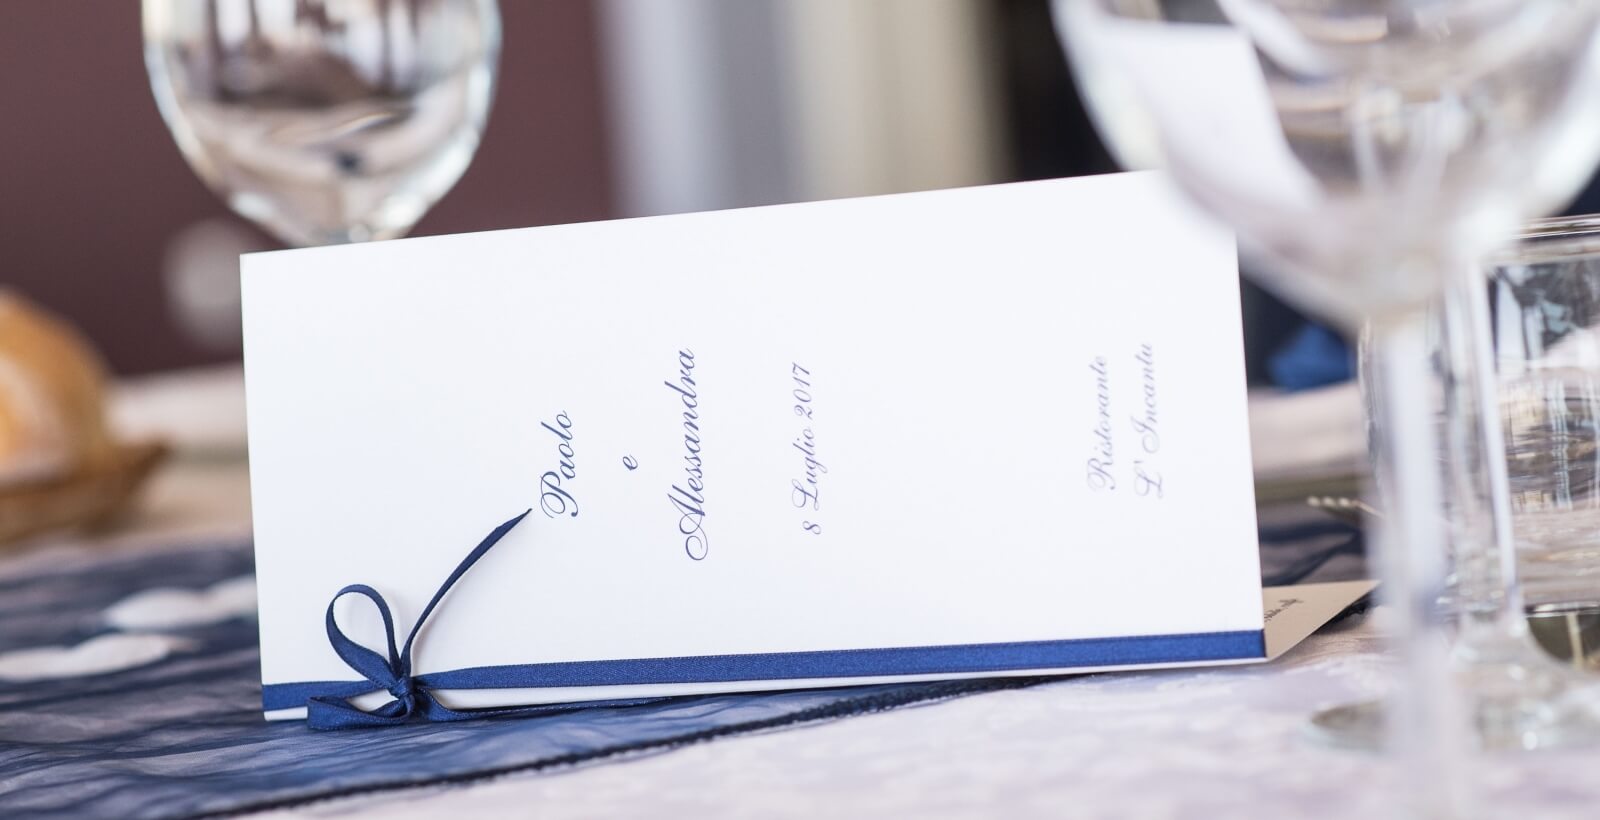 Paolo
e
Alessandra
8 Luglio 2017
Ristorante
L' Incantu